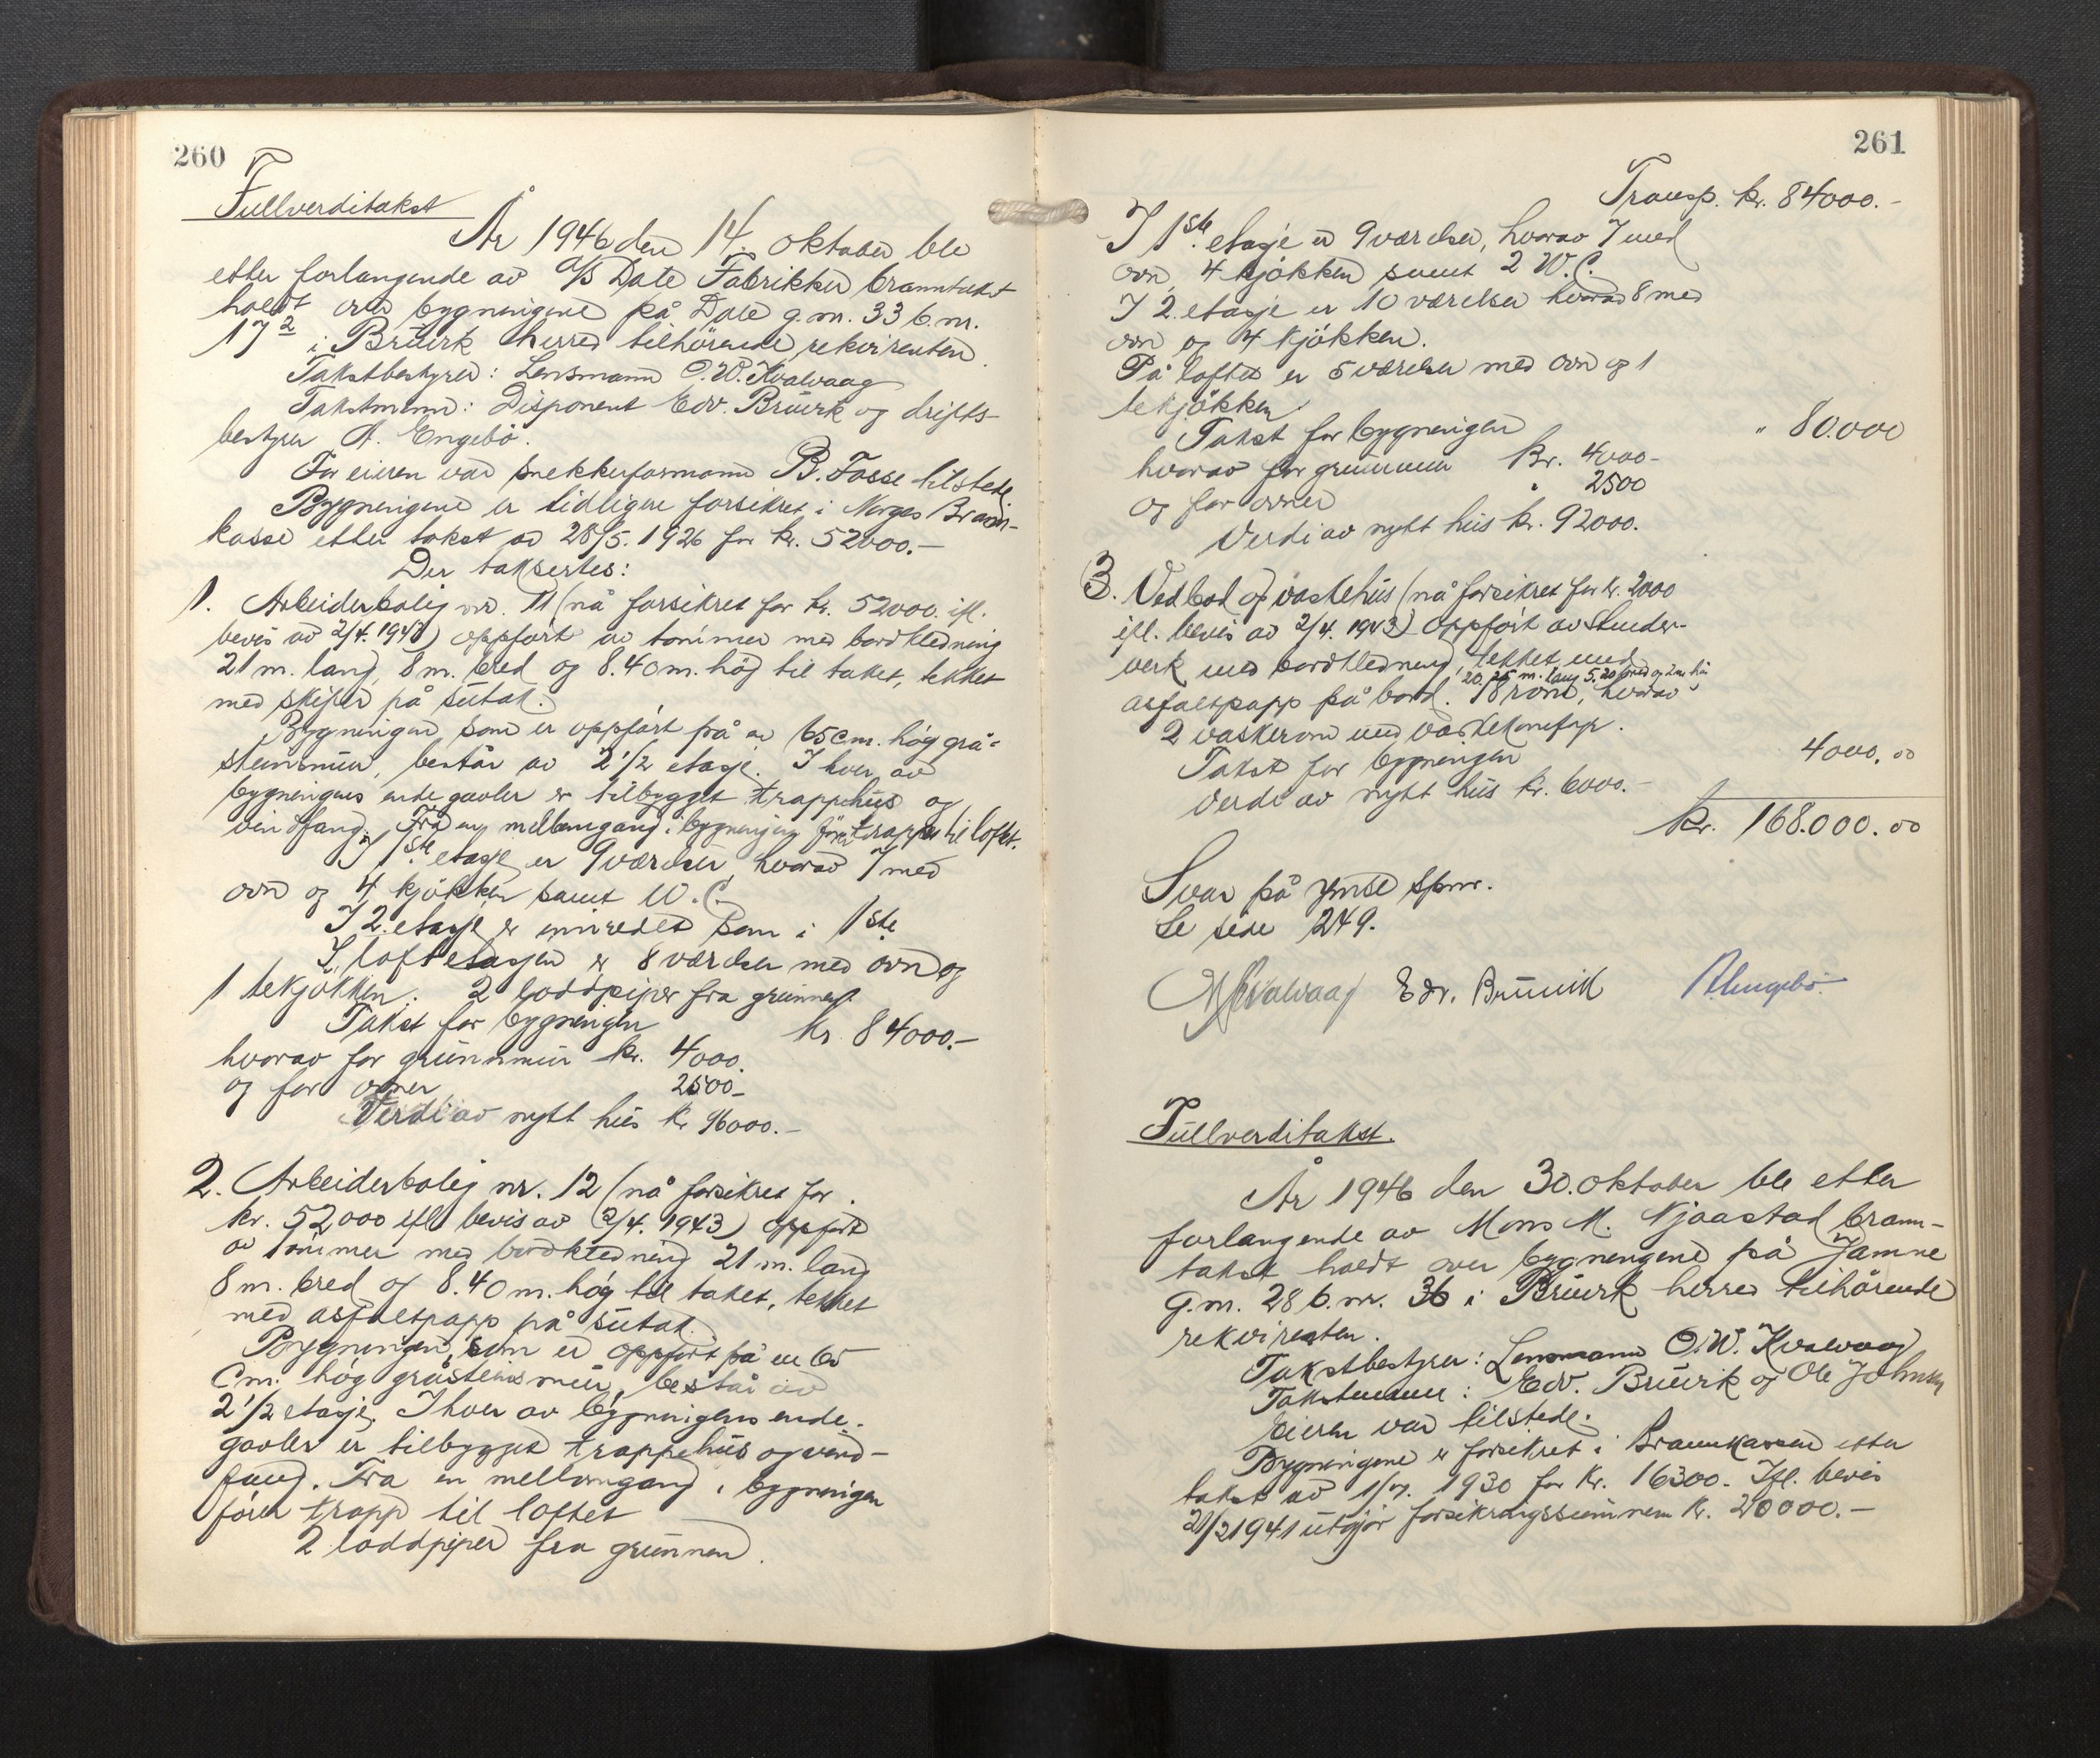 260
Fullverditakst
År 1946 den 14. oktober ble
etter forlangende av A/S Dale Fabrikker branntakst
holdt over bygningene på Dale g.nr. 33 b.nr.
17² i Bruvik herred tilhörende rekvirenten.
Takstbestyrer: Lensmann O.W. Kvalvaag
Takstmenn: Disponent Edv. Bruvik og drifts-
bestyrer A. Engebö.
For eieren var snekkerformann B. Fosse tilstede
Bygningene er tidligere forsikret i Norges Brann-
kasse etter takst av 28/5. 1926 for kr. 52000.-
Der taksertes:
1. Arbeiderbolig nr. 11 (nå forsikret for kr. 52000. ifl.
bevis av 2/4. 1943) oppfört av tömmer med bordkledning
21 m. lang, 8 m. bred og 8.40 m. hög til taket, tekket
med skifer på sutak.
Bygningen som er oppfört på en 65 cm. hög grå-
steinsmur, består av 2 1/2 etasje. I hver av
bygningens ende gavler er tilbygget trappehus og
vindfang. Fra en mellemgang i bygningen förer trapper til loftet.
I 1ste etasje er 9 værelser, hvorav 7 med
ovn og 4 kjökken samt W.C.
I 2. etasje er innredet som i 1ste
I loftetasjen er 8 værelser med ovn og
1 tekjökken. 2 loddpiper fra grunnen
Takst for bygningen kr. 84000.-
hvorav for grunnmur kr. 4000.
og for ovner 2500-
Verdi av nytt hus kr 96000.-
2. Arbeiderbolig nr. 12 (nå forsikret for
kr. 52,000 ifl bevis av 2/4. 1943) oppfört
av tömmer med bordkledning 21 m. lang
8 m. bred og 8.40 m. hög til taket, tekket
med asfaltpapp på sutak.
Bygningen, som er oppfört på en 65
cm. hög gråsteinsmur, består av
2 1/2 etasje. I hver av bygningens ende-
gavler er tilbygget trappehus og vind-
fang. Fra en mellemgang i bygningen
förer trapp til loftet
2 loddpiper fra grunnen.
261
Transp. kr. 84000.-
I 1ste etasje er 9 værelser, hvorav 7 med
ovn, 4 kjökken samt 2 W.C.
I 2. etasje er 10 værelser hvorav 8 med
ovn og 4 kjökken.
På loftet er 5 værelser med ovn og 1
tekjökken
Takst for bygningen " 80.000
hvorav for grunnmur kr. 4000-
og for ovner " 2500
Verdi av nytt hus kr. 92000.
3. Vedbod og vaskehus (nå forsikret for kr. 2000
ifl. bevis av 2/4. 1943) oppfört av stender-
verk med bordkledning, tekket med
20.25 m. lang 5.20 bred og
asfaltpapp på bord. 18 rom, hvorav
2 vaskerom med
Takst for bygningen 4000.00
Verdi av nytt hus kr. 6000.-
Kr. 168.000.00
Svar på ymse spm.
Se side 249.
OWKvalvaag Edv. Bruvik A Engebö
Fullverditakst.
År 1946 den 30. oktober ble etter
forlangende av Mons M. Njaastad brann-
takst holdt over bygningene på Jamne
g.nr. 28 b.nr. 36 i Bruvik herred tilhörende
rekvirenten.
Takstbestyrer: Lensmann O.W. Kvalvaag
Takstmenn: Edv. Bruvik og Ole Johnsen
Eieren var tilstede.
Bygningene er forsikret i Brannkassen etter
takst av 1/7. 1930 for kr. 16300.- Ifl. bevis
21/2 1941 utgjör forsikringssummen kr. 20000.-